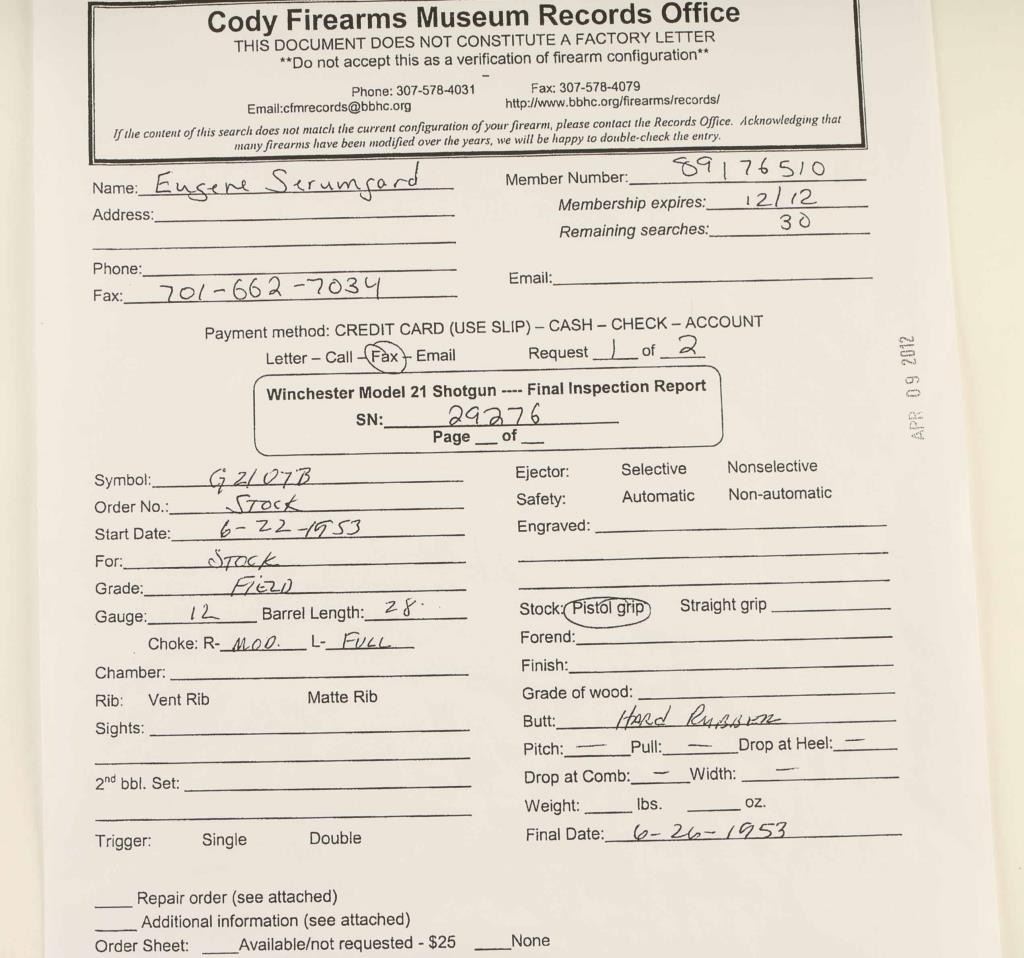 Cody Firearms Museum Records Office
THIS DOCUMENT DOES NOT CONSTITUTE A FACTORY LETTER
**Do not accept this as a verification of firearm configuration**
Phone: 307-578-4031 Fax: 307-578-4079
Email:cfmrecords@bbhc.org http://www.bbhc.org/firearms/records/
If the content of this search does not match the current configuration of your firearm, please contact the Records Office. Acknowledging that
many firearms have been modified over the years, we will be happy to double-check the entry.
Name: Eugene Scrumgard Member Number: 89176510
Address: Membership expires: 12/12
Remaining searches: 30
Phone: Email:
Fax: 701-662-7034
Payment method: CREDIT CARD (USE SLIP) – CASH – CHECK – ACCOUNT
Letter – Call – Fax – Email Request 1 of 2
APR 09 2012
Winchester Model 21 Shotgun ---- Final Inspection Report
SN: 29276
Page __ of __
Symbol: G2107B Ejector: Selective Nonselective
Order No.: STOCK Safety: Automatic Non-automatic
Start Date: 6-22-1953 Engraved:
For: STOCK
Grade: FIELD
Gauge: 12 Barrel Length: 28 Stock: Pistol grip Straight grip
Choke: R- MOD. L- FULL Forend:
Chamber: Finish:
Rib: Vent Rib Matte Rib Grade of wood:
Sights: Butt: HARD RUBBER
Pitch: — Pull: — Drop at Heel: —
2nd bbl. Set: Drop at Comb: — Width: —
Weight: lbs. oz.
Trigger: Single Double Final Date: 6-26-1953
____ Repair order (see attached)
____ Additional information (see attached)
Order Sheet: ____Available/not requested - $25 ____None